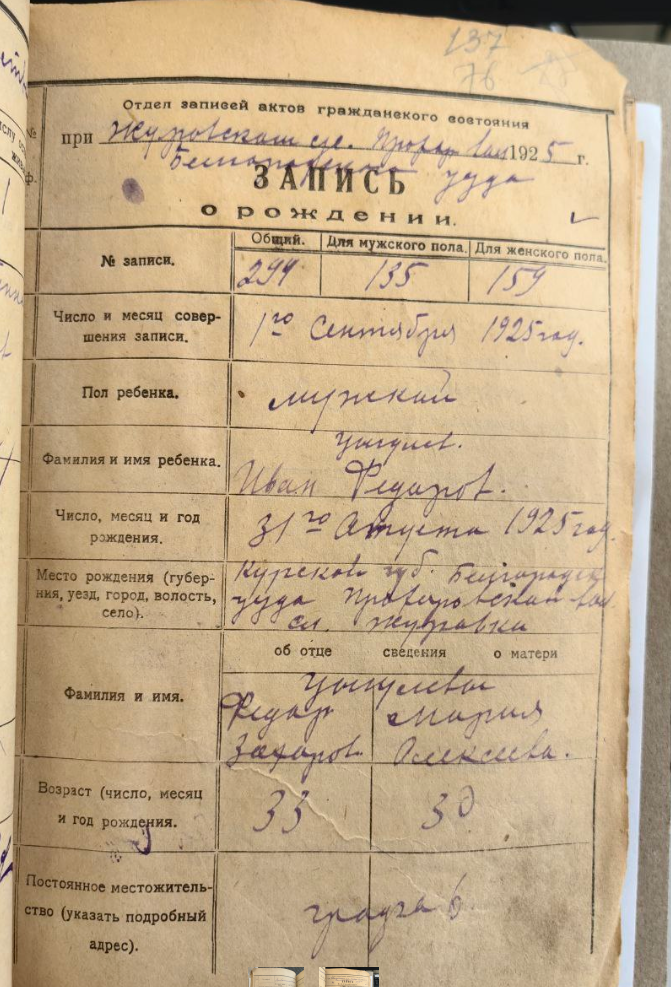 137
76
Отдел записей актов гражданского состояния
при Журавском с/с. Прохор. вол 1925 г.
Белгородского уезда
ЗАПИСЬ
о рождении.
Общий. Для мужского пола. Для женского пола.
№ записи. 294 135 159
Число и месяц совер-
шения записи.
1го Сентября 1925 год.
Пол ребенка. мужской
Фамилия и имя ребенка.
Иван Федоров.
Число, месяц и год
рождения.
31го Августа 1925 год.
Место рождения (губер-
ния, уезд, город, волость,
село).
Курской губ. Белгородск
уезда Прохоровской вол
сл. Журавка
об отце сведения о матери
Фамилия и имя.
Федор Мария
Захаров. Алексеева.
Возраст (число, месяц
и год рождения.
33 30
Постоянное местожитель-
ство (указать подробный
адрес).